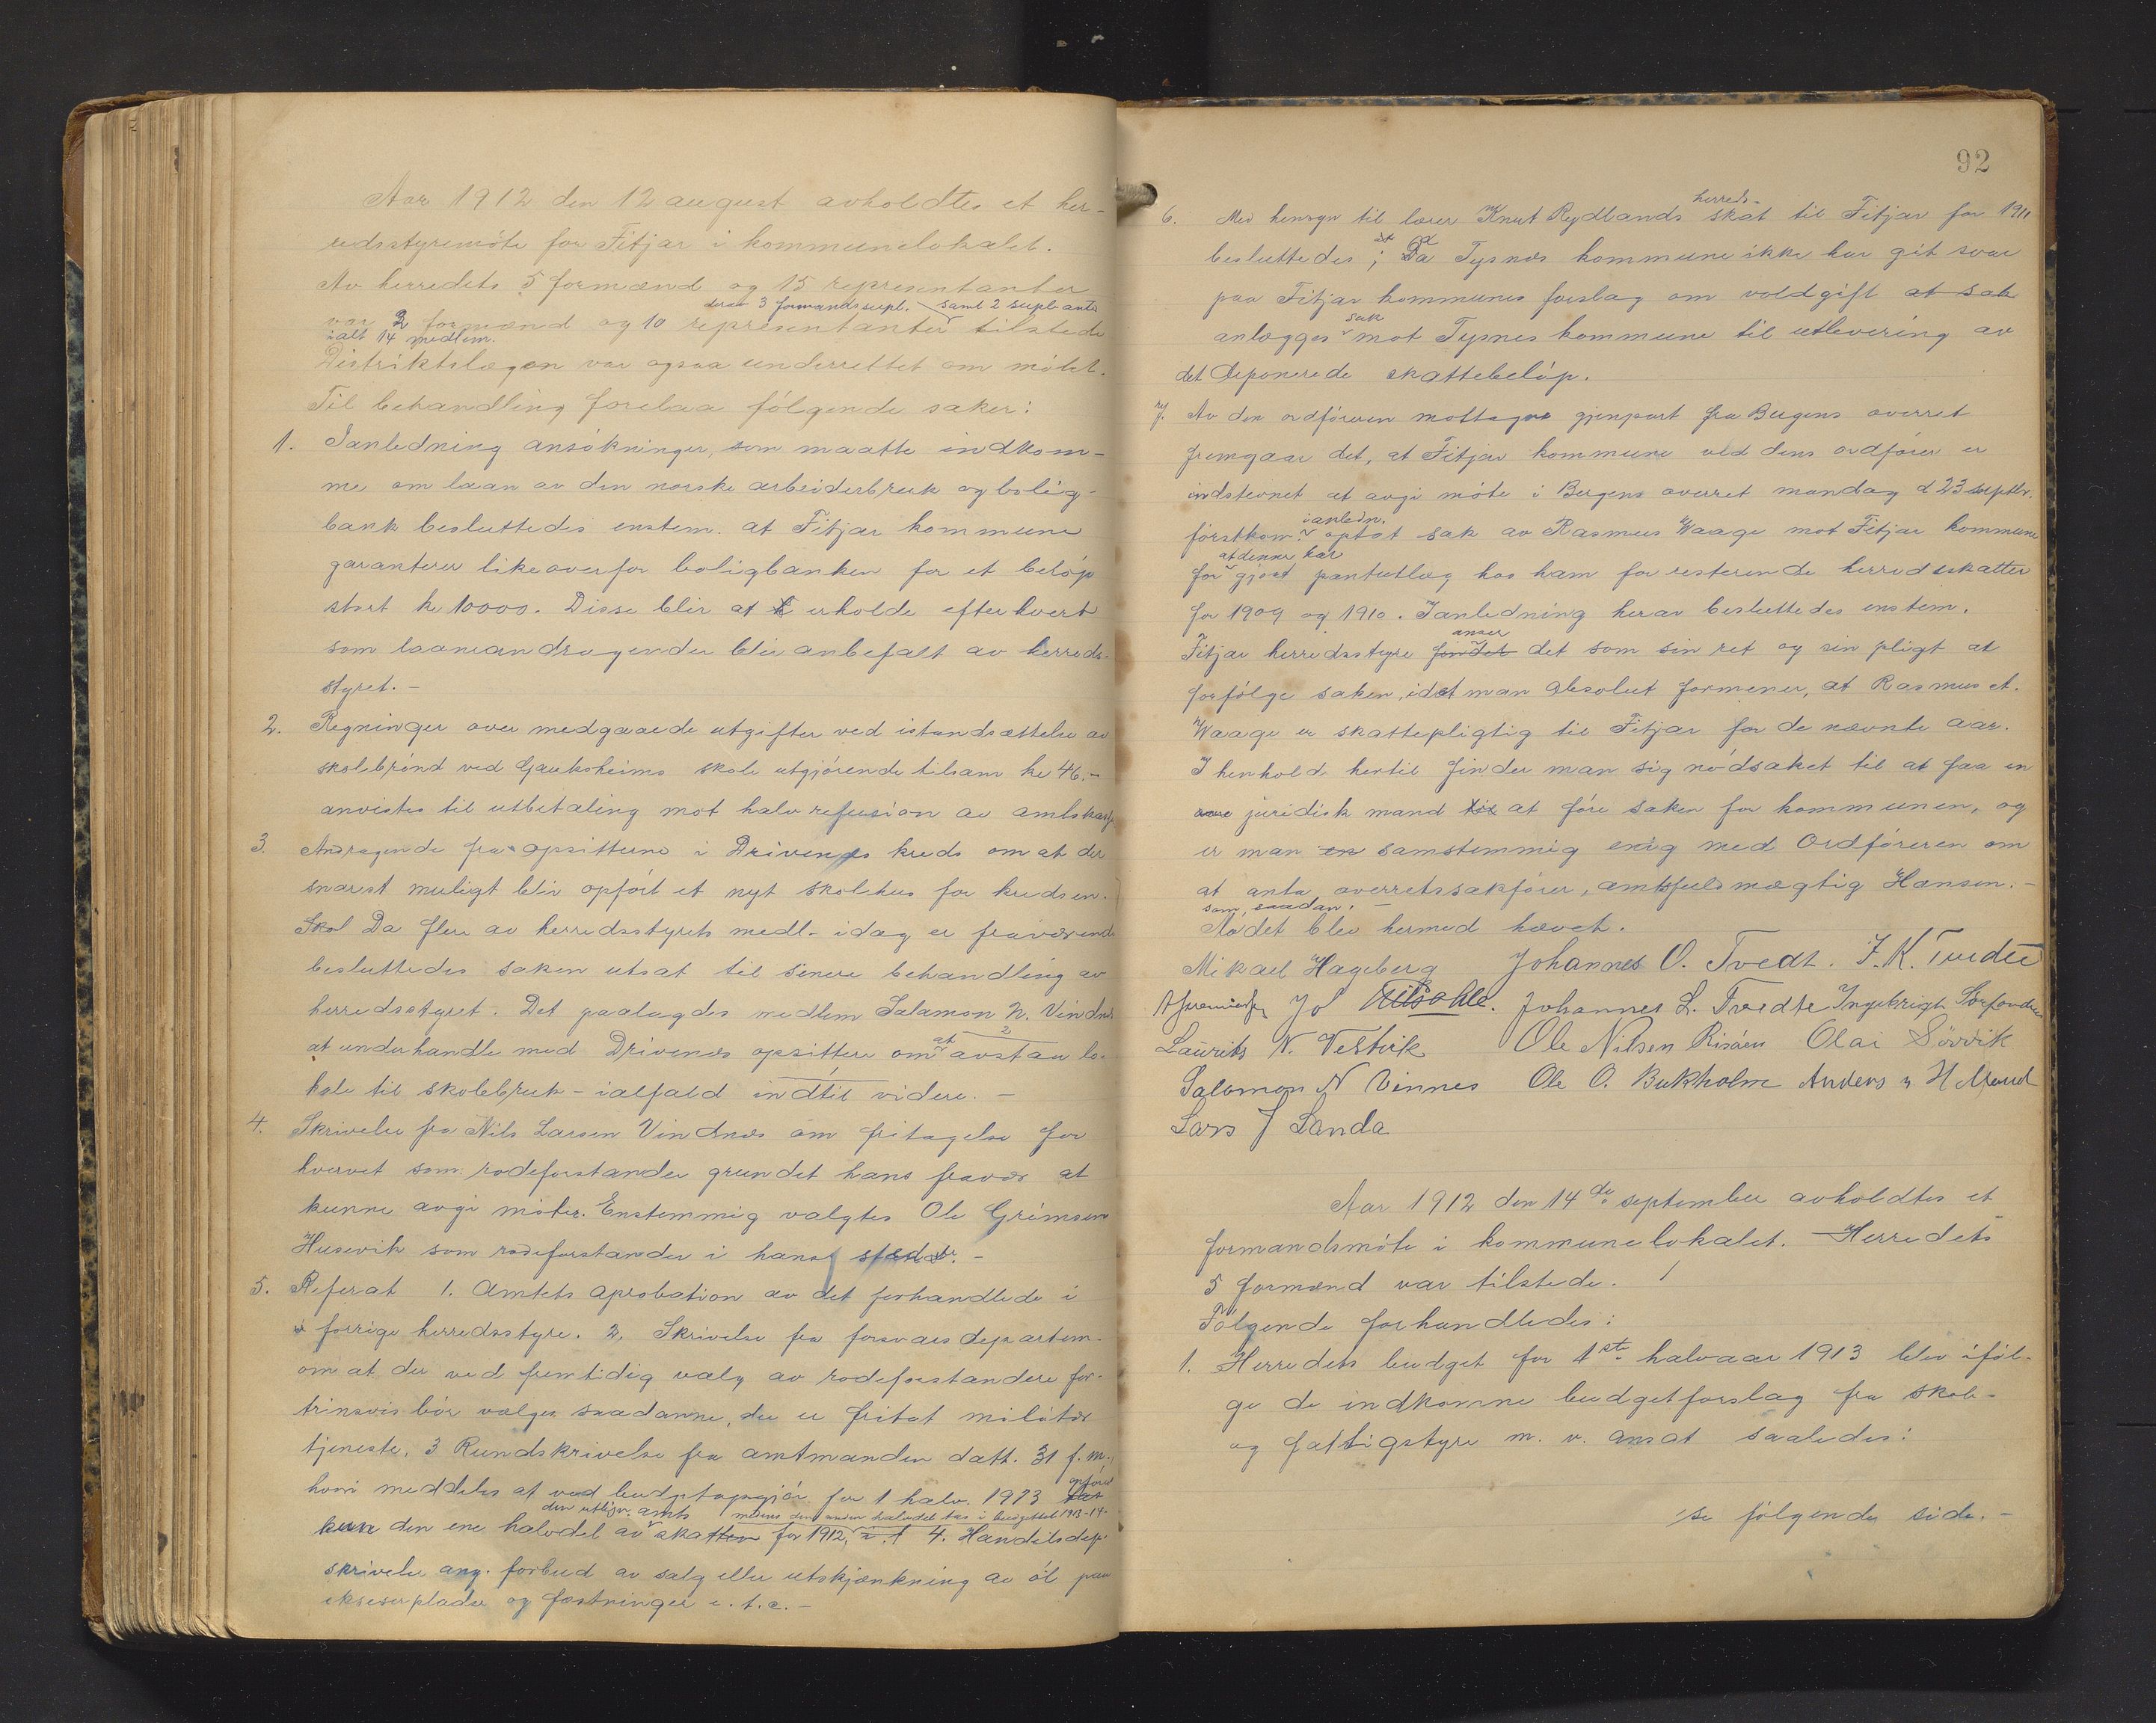 Aar 1912 den 12 august avholdtes et her-
redsstyremöte for Fitjar i kommunelokalet.
Av herredets 5 formænd og 15 representanter
derav 3 formandssupl. samt 2 suplanter
var 2 formænd og 10 representanter tilstede
ialt 14 medlem.
Distriktslægen var ogsaa underrettet om mötet.
Til behandling forelaa fölgende saker:
1. Ianledning ansökninger, som maatte indkom-
me om laan av den norske arbeiderbruk og bolig-
bank besluttedes enstem. at Fitjar kommune
garanterer likeoverfor boligbanken for et belöp
stort kr 10000. Disse blir at erholde efterhvert
som laaneandragender blir anbefalt av herreds-
styret. –
2. Regninger over medgaaede utgifter ved istandsættelse av
skolebrönd ved Gauksheims skole utgjörende tilsam kr 46.–
anvistes til utbetaling mot halv refusion av amtskassen
3. Andragende fra opsitterne i Drivenes kreds om at der
snarest muligt blir opfört et nyt skolehus for kredsen.
Skol Da flere av herredsstyrets medl. idag er fraværende
besluttedes saken utsat til senere behandling av
herredsstyret. Det paalagdes medlem Salamon N. Vindnes
at underhandle med Drivenes opsittere om at avstaa lo-
kale til skolebruk – ialfald indtil videre. –
4. Skrivelse fra Nils Larsen Vindnes om fritagelse for
hvervet som rodeforstander grundet hans fravær at
kunne avgi möter. Enstemmig valgtes Ole Grimsen
Husevik som rodeforstander i hans sted. –
5. Referat 1. Amtets aprobation av det forhandlede i
forrige herredsstyre. 2. Skrivelse fra forsvarsdepartem-
om at der ved fremtidig valg av rodeforstandere for-
trinsvis bör vælges saadanne, der er fritat militær
tjeneste. 3 Rundskrivelse fra amtmanden datt. 31 f.m.,
hvori meddeles at ved budgetopgjör for 1 halv. 1913 opföres
den utlign. amts mens den anden halvdel tas i budgettet 1913-14-
kun den ene halvdel av skatten for 1912, i. t 4. Handelsdep.
skrivelse ang. forbud av salg eller utskjænkning av öl paa
ekserserpladser og fæstninger e.t.c. –
92
6. Med hensyn til lærer Knut Rydlands herreds- skat til Fitjar for 1911
besluttedes; at Da Tysnes kommune ikke har git svar
paa Fitjar kommunes forslag om voldgift at sak
anlægges sak mot Tysnes kommune til utlevering av
det deponerede skattebelöp.
7. Av den ordföreren mottagne gjenpart fra Bergens overret
fremgaar det, at Fitjar kommune ved dens ordförer er
indstevnet at avgi möte i Bergens overret mandag d 23 septbr.
förstkom. ianledn. optat sak av Rasmus Waage mot Fitjar kommune
for at denne har gjort pantutlæg hos ham for resterende herredsskatter
for 1909 og 1910. Ianledning herav besluttedes enstem.
Fitjar herredsstyre finder anser det som sin ret og sin pligt at
forfölge saken, idet man absolut formener, at Rasmus et.
Waage er skattepligtig til Fitjar for de nævnte aar.
I henhold hertil finder man sig nödsaket til at faa en
juridisk mand til at före saken for kommunen, og
er man en samstemmig enig med Ordföreren om
at anta overretssakförer, amtsfuldmægtig Hansen. –
som saadan. –
Mödet blev hermed hævet.
Mikael Hageberg Johannes O. Tvedt. J. K. Tvedte
Johannes L. Tvedte Ingebrigt Sörfonden
Laurits N. Vestvik Ole Nilsen Risöen Olai Sörvik
Salomon N Vinnes Ole O. Bukholm Anders Helland
Lars J Sanda
Aar 1912 den 14de september avholdtes et
formandsmöte i kommunelokalet. Herredets
5 formænd var tilstede.
Fölgende forhandledes:
1. Herredets budget for 1ste halvaar 1913 blev iföl-
ge de indkomne budgetforslag fra skole-
og fattigstyre m. v. ansat saaledes:
se fölgende side. –